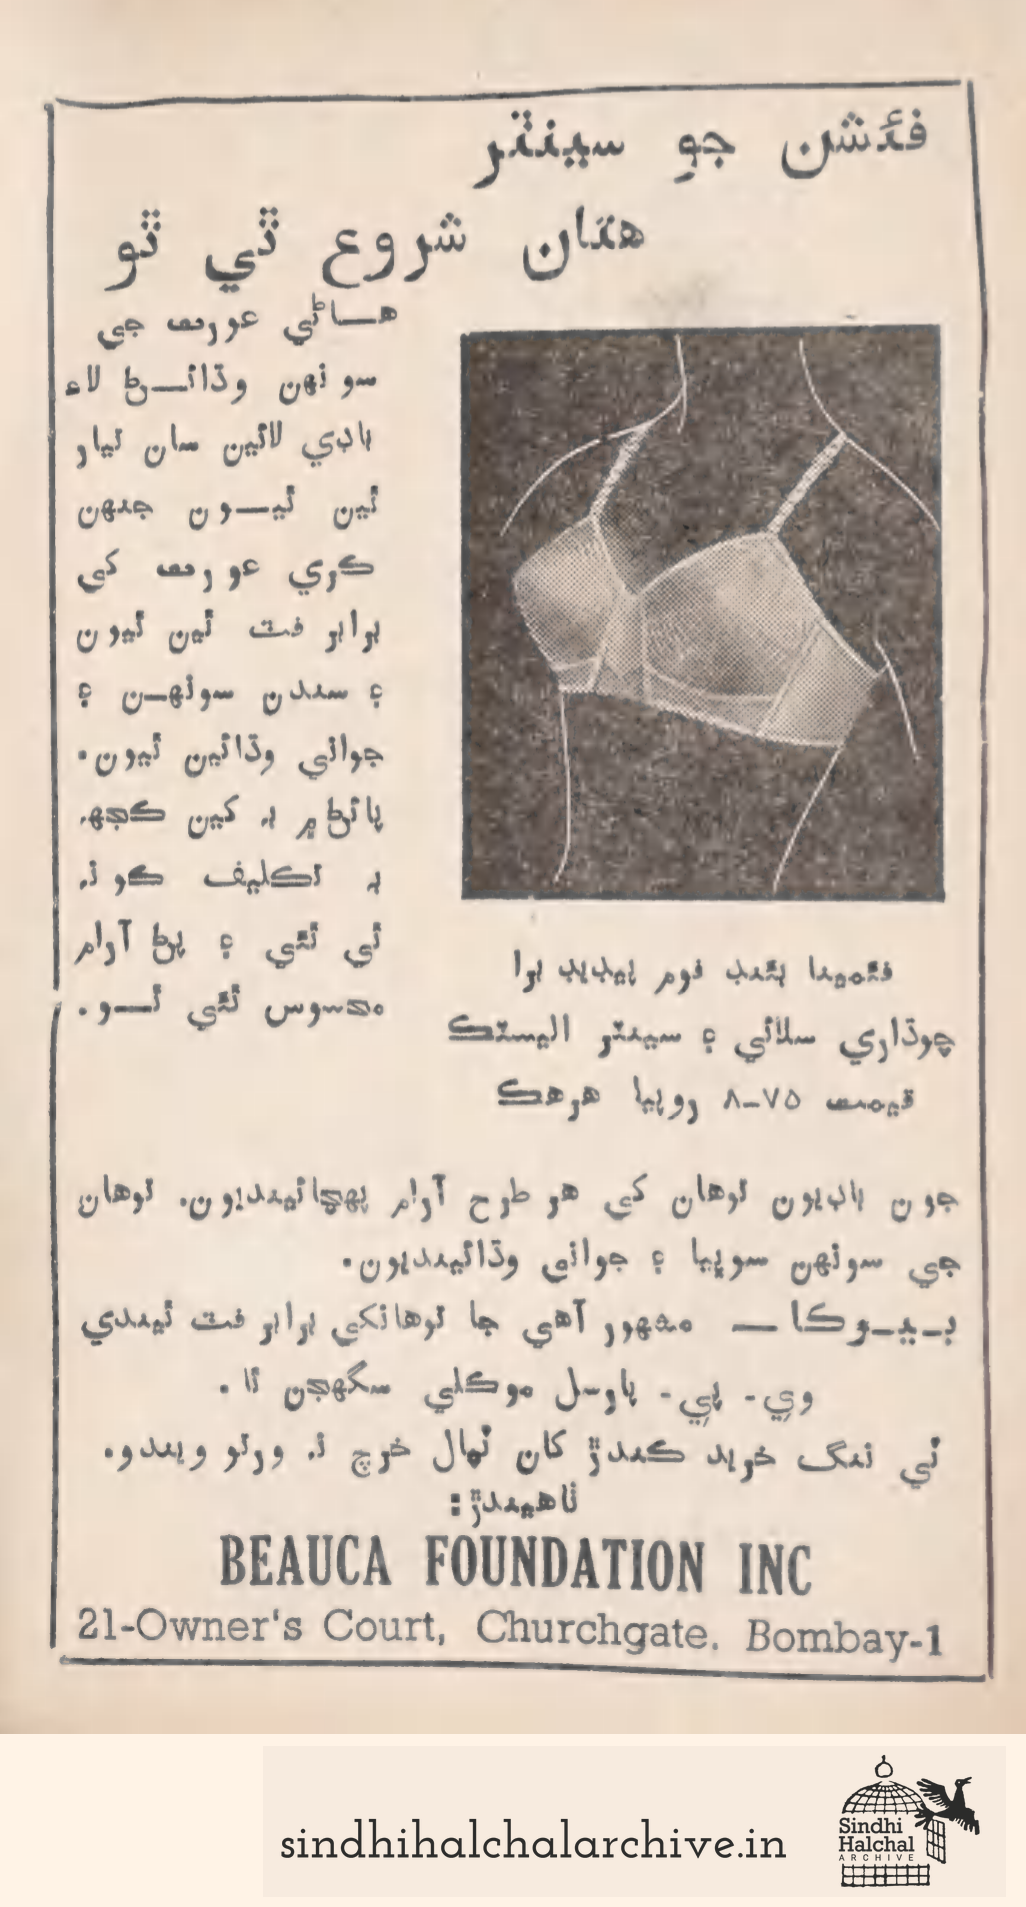 فئشن جو سينٽر
هتان شروع ٿي ٿو
هاڻي عورت جي
سونهن وڌائڻ لاء
باڊي لائين سان تيار
ٿين ٿيون جنهن
ڪري عورت کي
برابر فٽ ٿين ٿيون
۽ سندن سونهن ۽
جواني وڌائين ٿيون.
پائڻ ۾ بہ کين ڪجهہ
بہ تڪليف ڪو نہ
ٿي ٿئي ۽ پڻ آرام
محسوس ٿئي ٿو.
فوم پيڊيڊ برا
چوڌاري سلائي ۽ سينٽر اليسٽڪ
قيمت ۷۵-۸ روپيا هرهڪ
جون باڊيون توهان کي هر طرح آرام پهچائينديون. توهان
جي سونهن سوڀيا ۽ جواني وڌائينديون.
بــيــوڪا — مشهور آهي جا توهانکي برابر فٽ ٿيندي
وي. پي. پارسل موڪلي سگهجن ٿا.
ٽي ننگ خريد ڪندڙ کان ٽپال خرچ نہ ورتو ويندو.
ٺاهيندڙ:
BEAUCA FOUNDATION INC
21-Owner's Court, Churchgate. Bombay-1
sindhihalchalarchive.in
Sindhi
Halchal
ARCHIVE